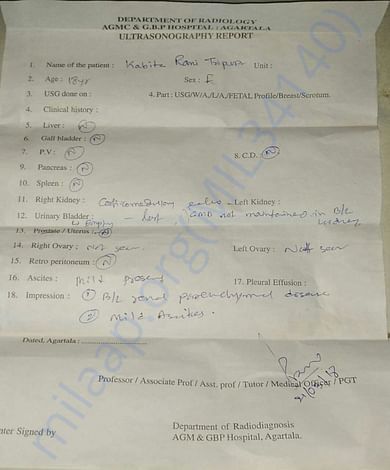 DEPARTMENT OF RADIOLOGY
AGMC & G.B.P HOSPITAL : AGARTALA
ULTRASONOGRAPHY REPORT
1. Name of the patient : Kabita Rani Tripura Unit :
2. Age : 18yr Sex : F
3. USG done on : 4. Part : USG/W/A,/L/A,/FETAL Profile/Breast/Scrotum.
4. Clinical history :
5. Liver : N
6. Gall bladder : N
7. P.V : N 8. C.D. : N
9. Pancreas : N
10. Spleen : N
11. Right Kidney : Left Kidney :
12. Urinary Bladder : Empty not maintained in B/L kidney
13. Prostate / Uterus : N
14. Right Ovary : Not seen Left Ovary : Not seen
15. Retro peritoneum : N
16. Ascites : mild present 17. Pleural Effusion :
18. Impression : ① B/L renal parenchymal disease
② mild Ascites.
Dated, Agartala :
Professor / Associate Prof / Asst. prof / Tutor / Medical Officer / PGT
nter Signed by
Department of Radiodiagnosis
AGM & GBP Hospital, Agartala.
milaap.org(MIL34140)